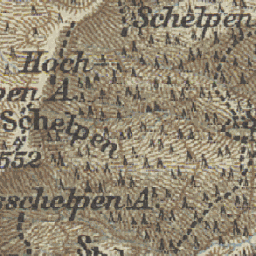 Schelpen
Hoch
pen A.
Schelpen
552
sschelpen A.